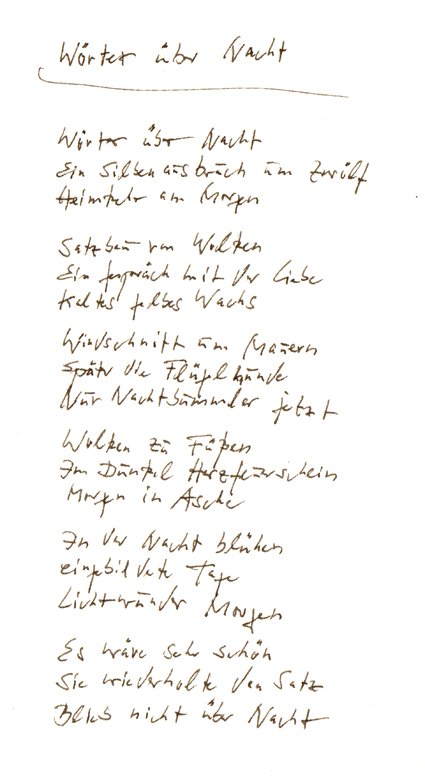 Wörter über Nacht
Wörter über Nacht
Ein Silbenausbruch um Zwölf
Heimkehr am Morgen
Satzbau von Wolken
Ein Gespräch mit der Liebe
Kaltes gelbes Wachs
Windschnitt um Mauern
Später die Flügelhunde
Nur Nachtbummler jetzt
Wolken zu Füßen
Im Dunkel Herzfeuerschein
Morgen in Asche
In der Nacht blühen
eingebildete Tage
Lichtwunder Morgen
Es wäre sehr schön
Sie wiederholte den Satz
Blieb nicht über Nacht